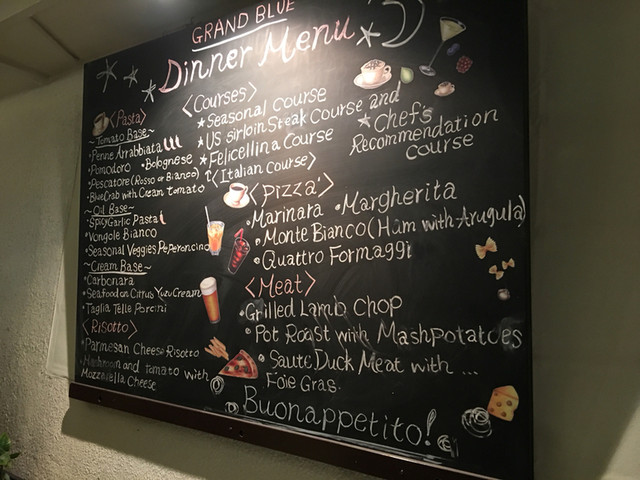 GRAND BLUE
Dinner Menu
<Pasta>
~Tomato Base~
•Penne Arrabbiata
•Pomodoro •Bolognese
•Pescatore (Rosso or Bianco)
•Blue Crab with Cream Tomato
~Oil Base~
•Spicy Garlic Pasta
•Vongole Bianco
•Seasonal Veggies Peperoncino
~Cream Base~
•Carbonara
•Seafood on Citrus Yuzu Cream
•Taglia Telle Porcini
<Risotto>
•Parmesan Cheese Risotto
•Mushroom and Tomato with
Mozzarella Cheese
<Courses>
★Seasonal Course
★US sirloin Steak Course and
★Felicellina Course
↑<Italian Course>
★Chef's
Recommendation
Course
<Pizza>
•Marinara •Margherita
•Monte Bianco (Ham with Arugula)
•Quattro Formaggi
<Meat>
•Grilled Lamb Chop
•Pot Roast with Mashpotatoes
•Saute Duck Meat with ...
Foie Gras.
Buonappetito!